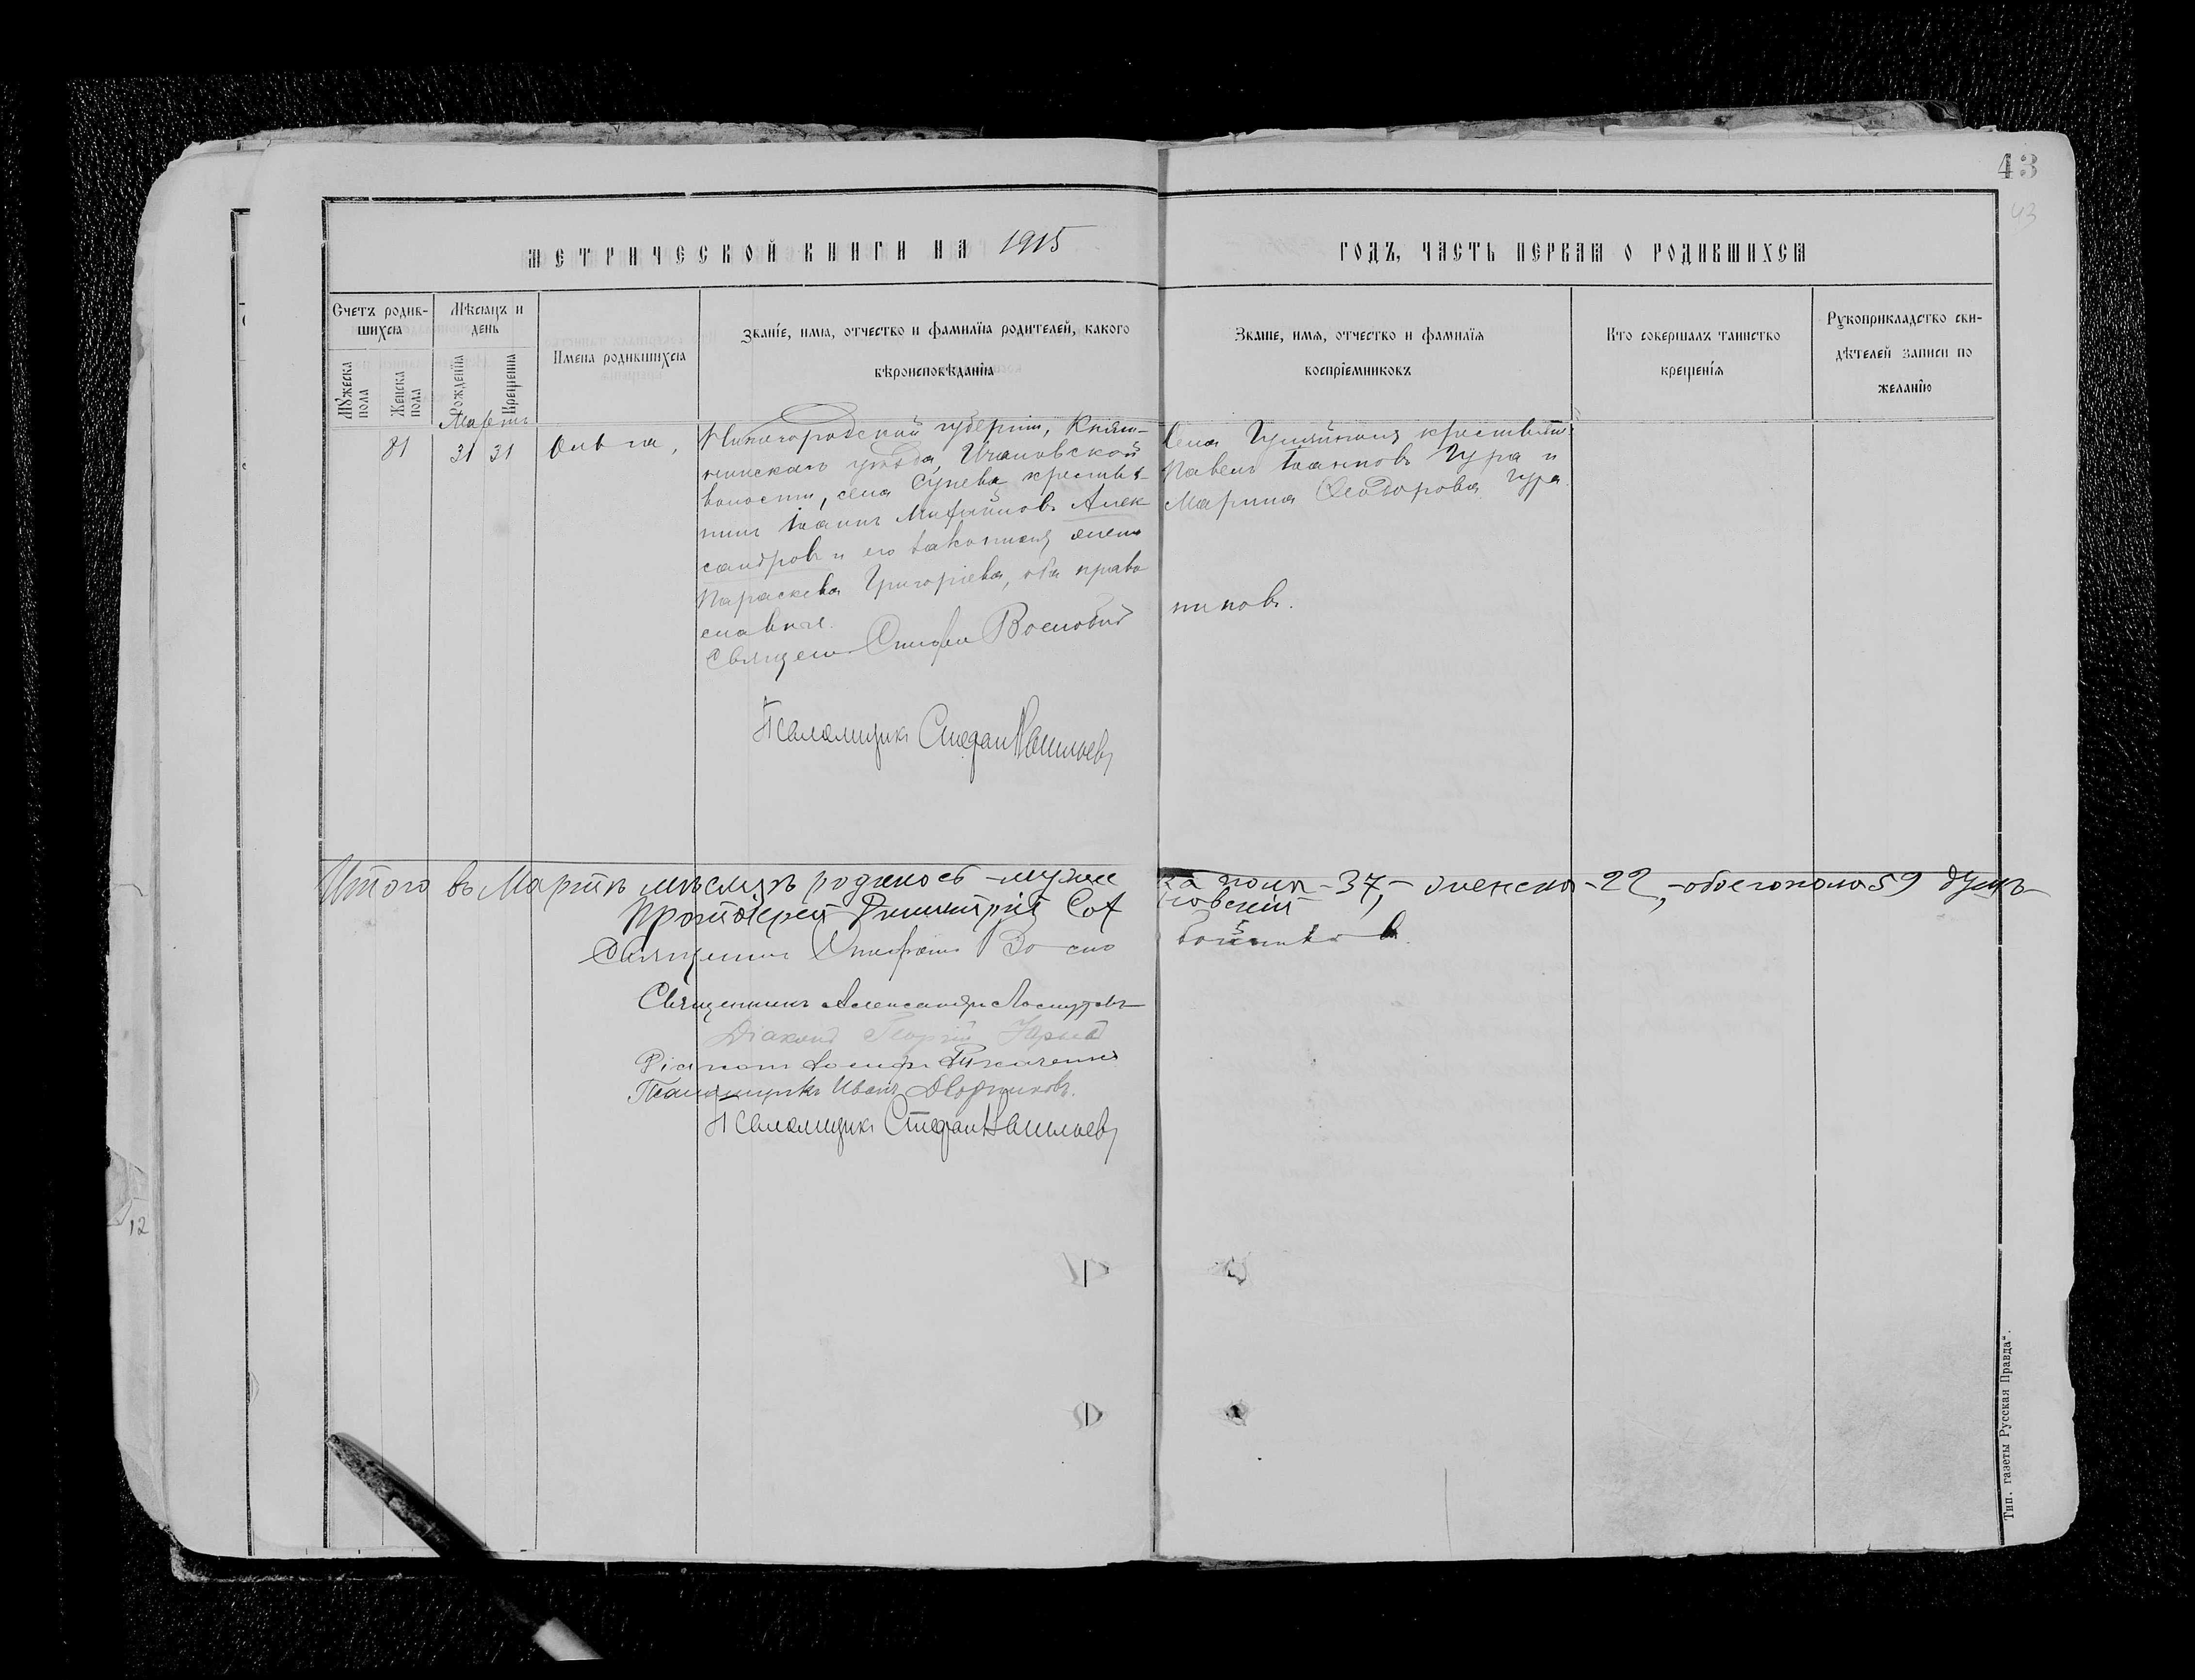 43
43
МЕТРИЧЕСКОЙ КНИГИ НА 1915
ГОДЪ, ЧАСТЬ ПЕРВАЯ О РОДИВШИХСЯ
Счетъ родив-
шихся
Мѣсяцъ и
день
Мужеска
пола
Женска
пола
Рожденія
Крещенія
Имена родившихся
Званіе, имя, отчество и фамилія родителей, какого
вѣроисповѣданія
Званіе, имя, отчество и фамилія
воспріемниковъ
Кто совершалъ таинство
крещенія
Рукоприкладство сви-
дѣтелей записи по
желанію
Мартъ
81
31 31
Ольга,
Нижегородской губерніи, Княги-
нинскаго уѣзда,
волости, села крестья-
нинъ Іоаннъ Алек
сандровъ и его законная жена
Параскева Григоріева, оба право
славные.
Священ
Псаломщикъ Стефанъ Васильевъ
Села крестьяне
Павелъ Іоанновъ Гура и
Марина Ѳеодорова Гура.
никовъ.
Итого въ Мартѣ мѣсяцѣ родилось - мужес
ка пола - 37, - женска - 22, - обоего пола 59 душъ
Протоіерей Димитрій Соф
новскій
Священникъ
Священникъ Александръ
Діаконъ Георгій
Діаконъ Ткаченко
Псаломщикъ Иванъ Дворниковъ.
Псаломщикъ Стефанъ Васильевъ
12
Тип. газеты Русская Правда".